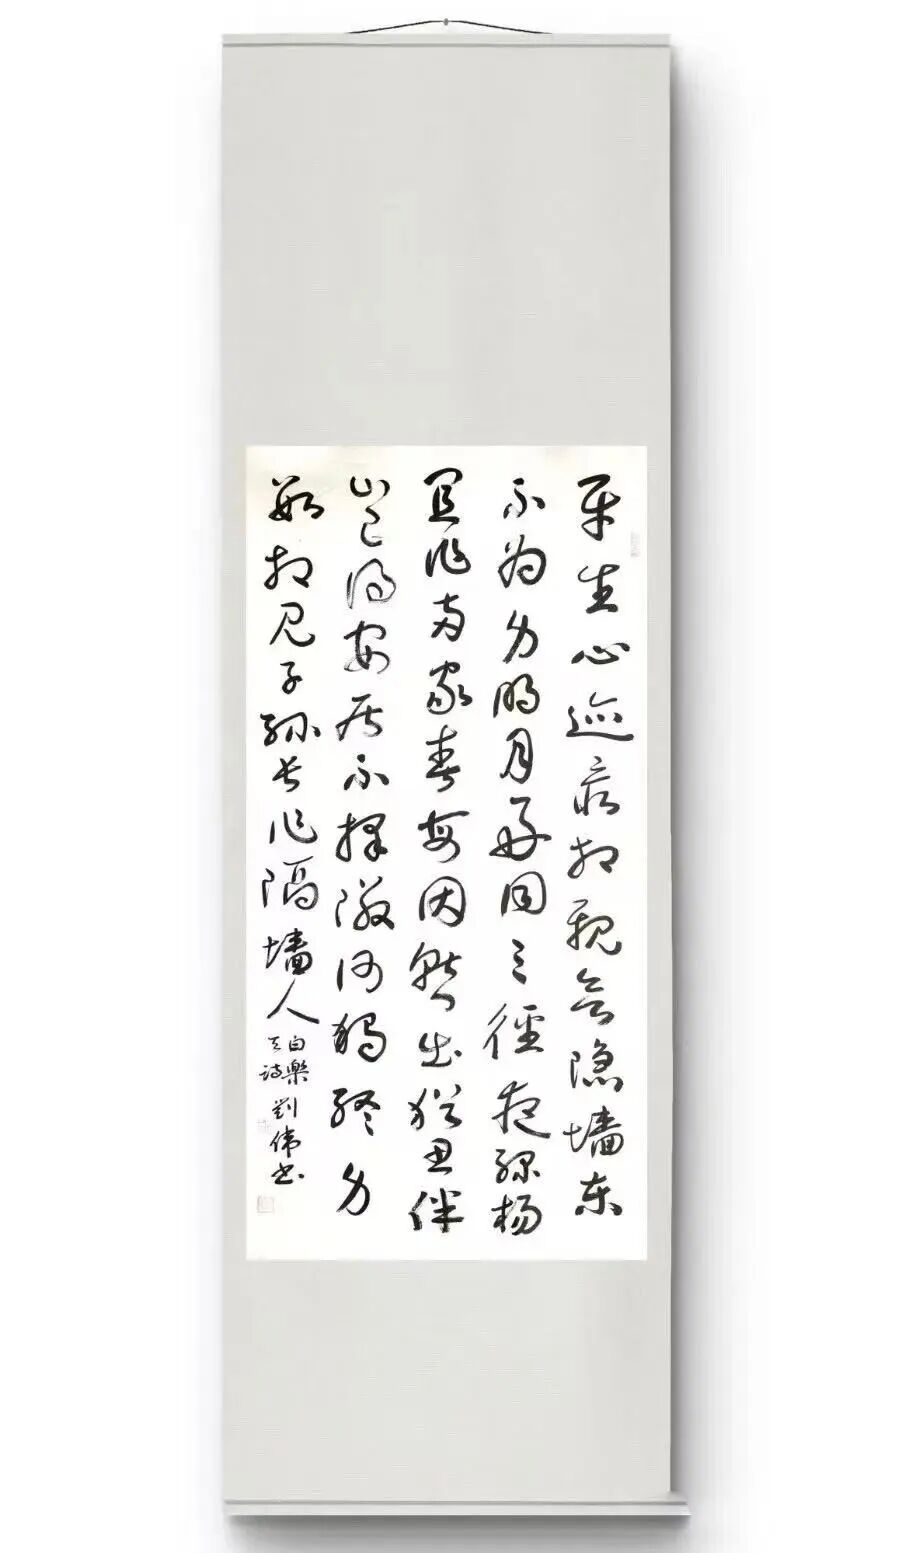 平生心迹最相親欲隐墙东
不为身明月好同三徑夜绿杨
宜作两家春每因暂出犹思伴
岂得安居不择隣何独终身
数相见子孙长作隔墙人
白樂天诗
劉伟书